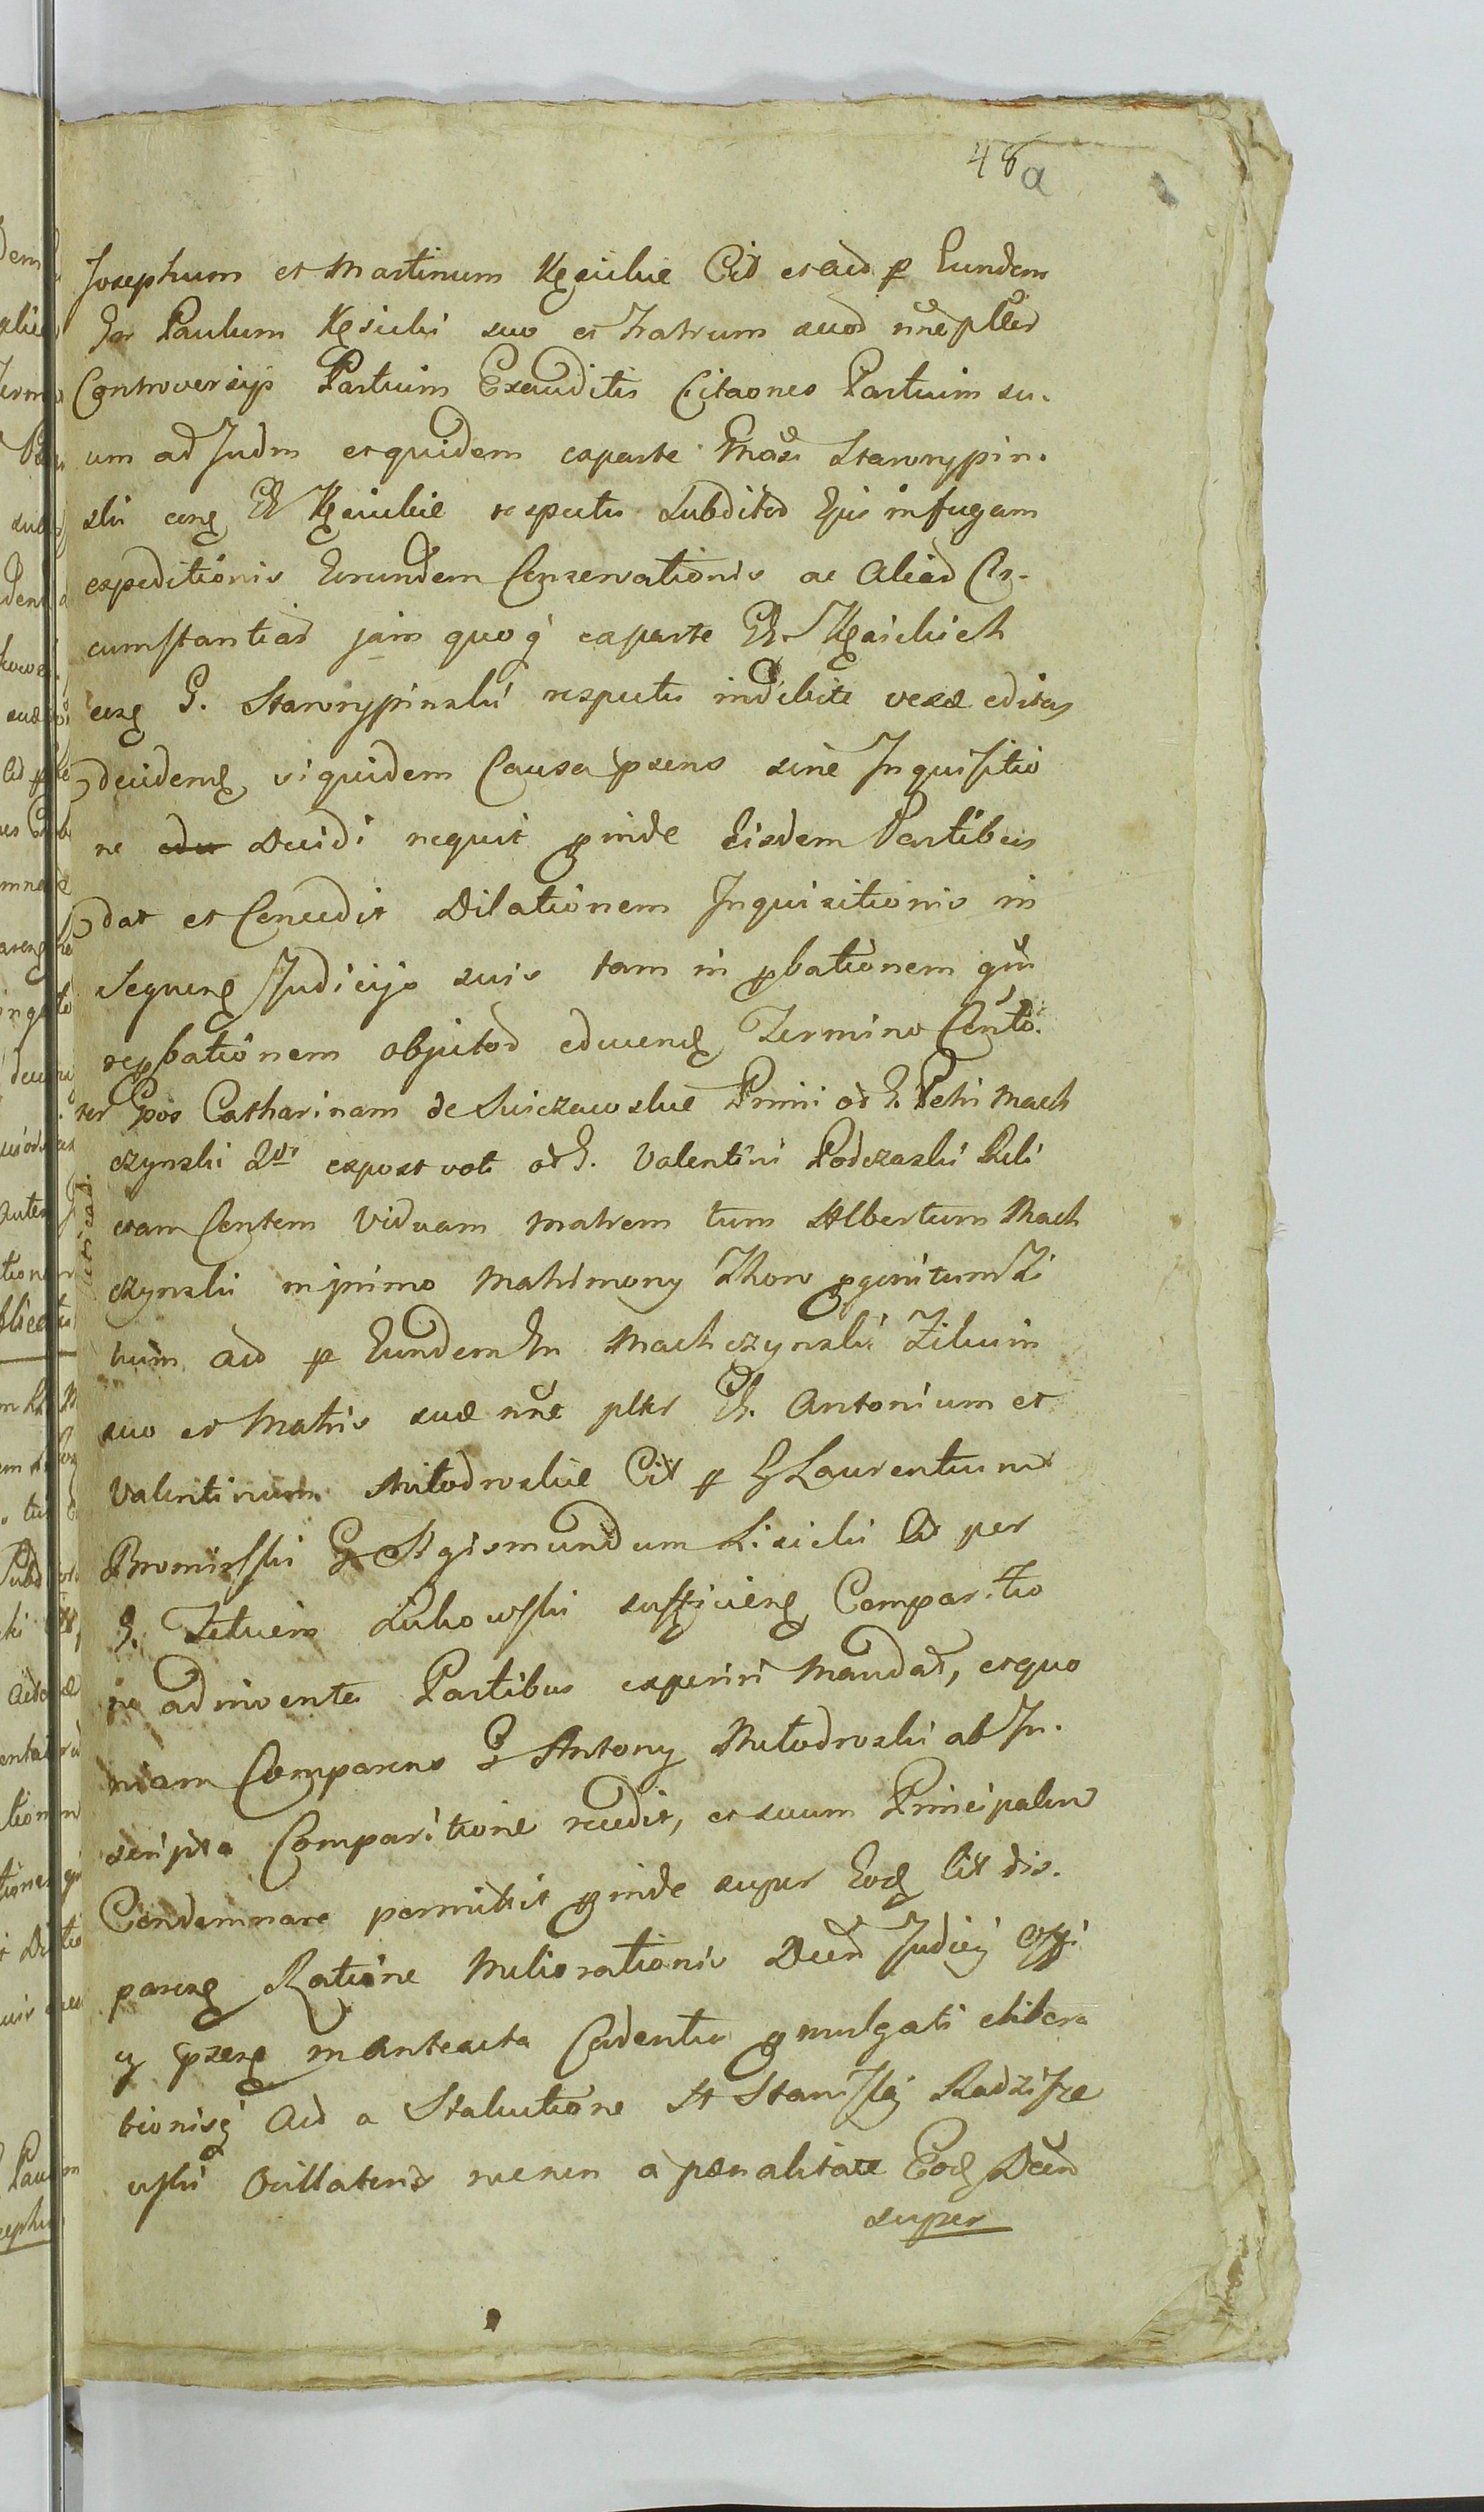 48a
Josephum et Martinum Kęsickie Cit et acd p Eundem
Gr Paulum Kęsicki suo et Fratrum suod nne pltr
Controversijs Partium Exauditis Citaones Partium su.
um ad Judm et quidem ex parte Starorypin.
ski ctrg GG Kęsickie respectu Subditod Ejus in fugam
expeditionis Eorundem Conservationis ac aliad Cir.
cumstantiad jam quoq ex parte GG. Kęsickich
ctrg G. Starorypinski respectu indebite vexae editas
decidendg siquidem Causa psens sine Inquisitio
ne Decidi nequit pinde Eisdem Partibus
dat et Concedit Dilationem Inquisitionis in
Sequeng Judicijs suis tam in pbationem qm
repbationem objectod educeng Termino Cento.
ter Gos Catharinam de Primi od G. Petri Mach
czynski 2di expost voti od G. Valentini Podczaski Reli
ctam Contem Viduam Matrem tum Albertum Mach
czynski in primo Matrimony Thoro pgenitum Fi
lium acd p Eundem Gn Machczynski Filium
suo et Matris suae nne pltr GG. Antonium et
Valentinum Młodroskie Cit p G Laurentium
Bromirski G Sigismundum Lisicki Cit per
G. Felicem Łukowski sufficieng Comparitio
ne adinventa Partibus experiri Mandat, et quo
niam Comparens G Antony Młodroski ab In.
scripta Comparitione recedit, et suum Principalem
Condemnare permittit pinde super Eodg Cit dis.
pareng Ratione Meliorationis Decd Judicij Offi
y pseng in Anteacta Cadentia pmulgati elibera
tionisq Acd a Statutione H Stanislai Radzisze
wski Oculatens necnon a paenalitate Eodg Decd
super